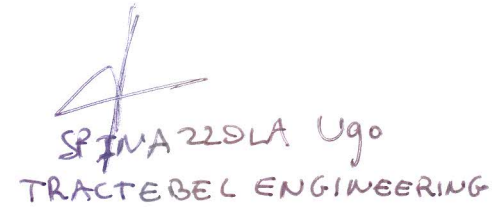 SPINAZZOLA Ugo
TRACTEBEL ENGINEERING